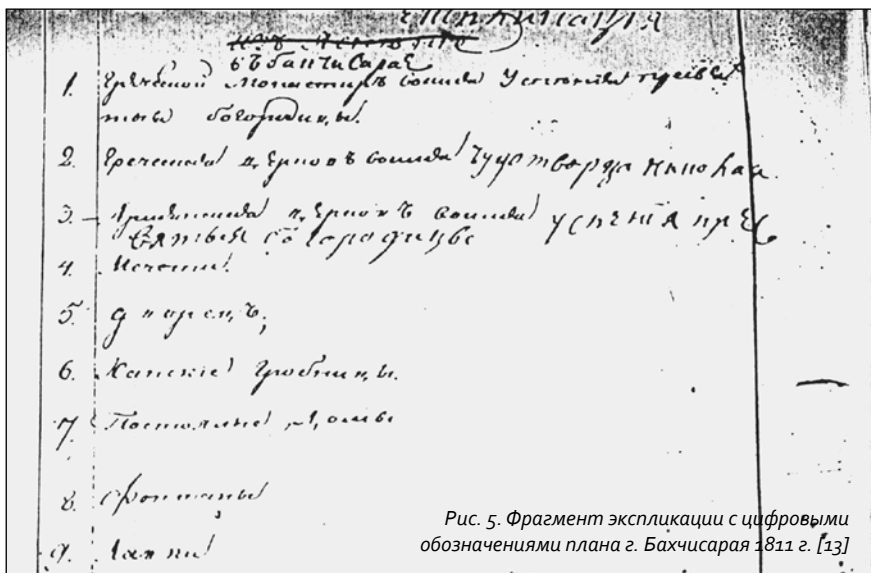 Экспликация
въ Бахчисарае
1. Греческой Монастырь во имя Успения пресвя
тыя богородицы.
2. Греческая церковь во имя Чудотворца Николая
3. церковь во имя успения прес
вятыя богородицы
4. Мечети.
5. дворецъ,
6. Ханские гробницы.
7. Постоялые домы
8. Фонтаны
9. Лавки
Рис. 5. Фрагмент экспликации с цифровыми
обозначениями плана г. Бахчисарая 1811 г. [13]